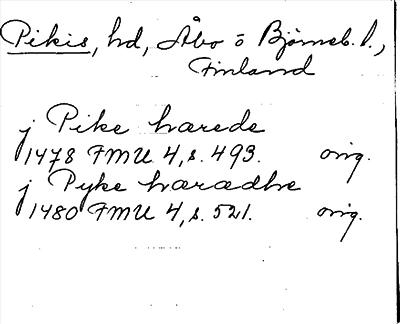 Pikis, hd, Åbo o Björneb. l.,
Finland
j Pike hærede
1478 FMU 4, s. 493. orig.
j Pyke hæradhe
1480 FMU 4, s. 521. orig.